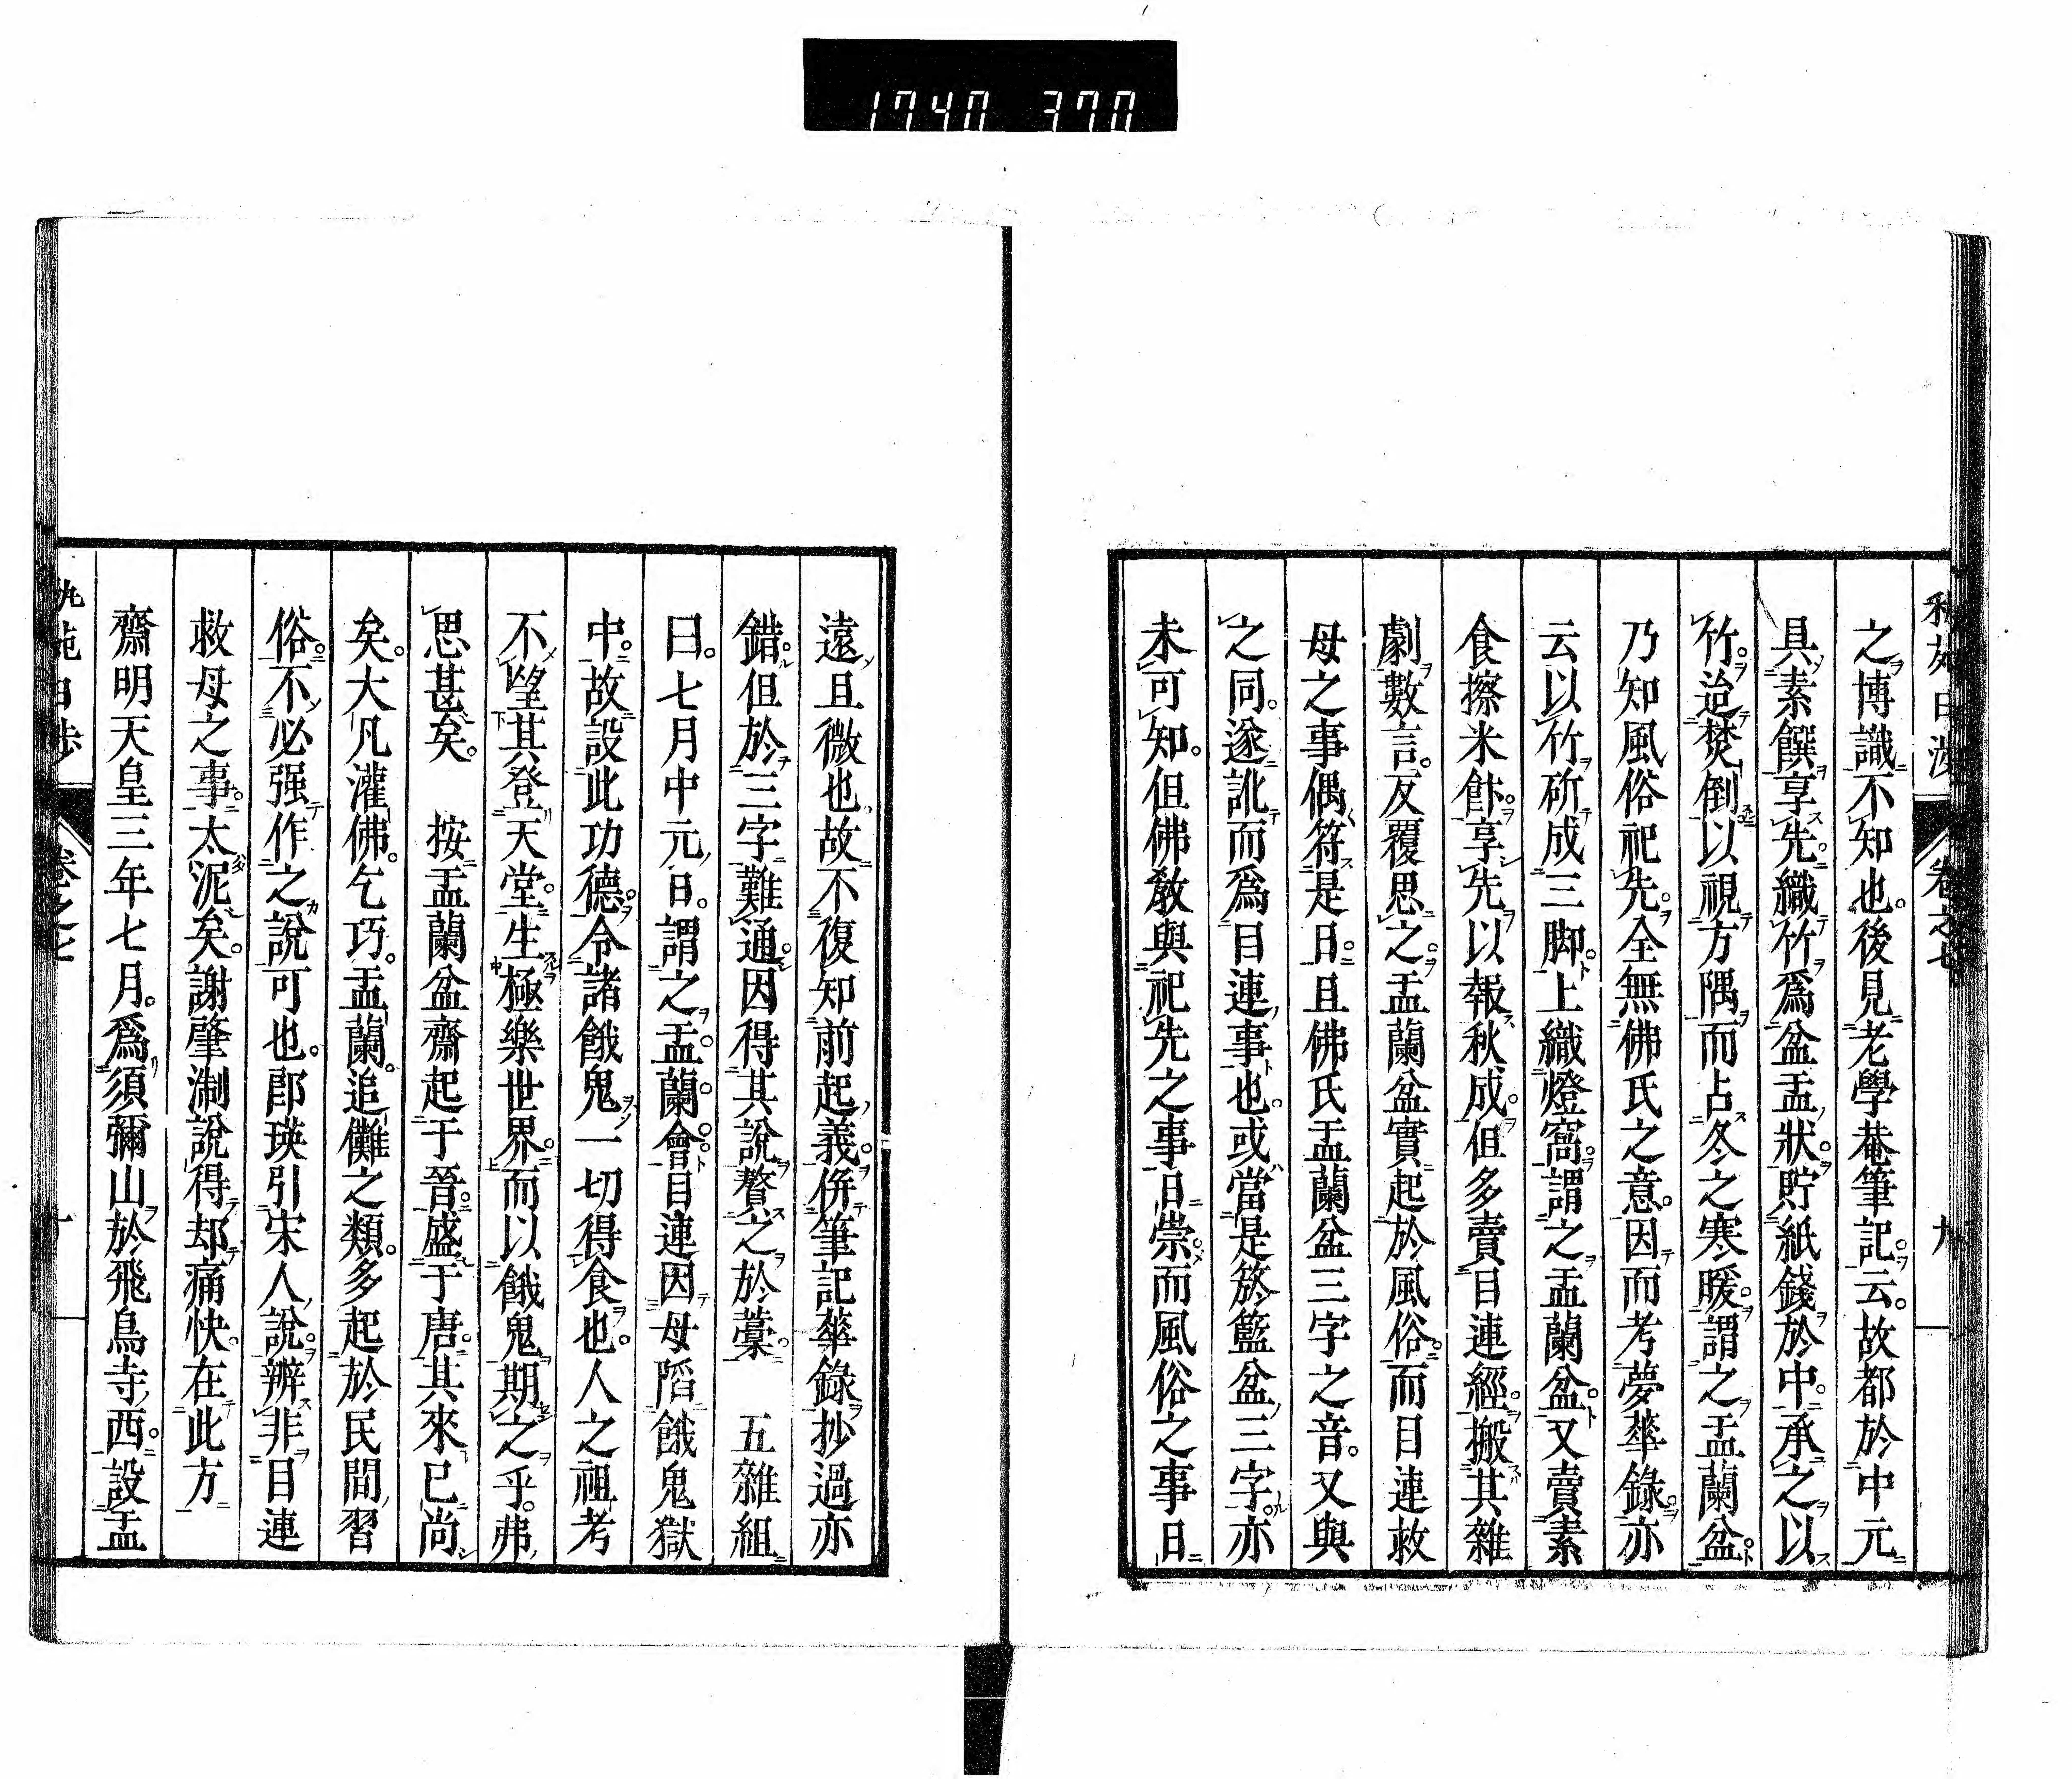 1740 370
卷之七
九
之博識不知也。後見老學菴筆記云。故都於中元
具素饌享先。織竹爲盆盂狀。貯紙錢於中。承之以
竹。迨焚倒以視方隅而占冬之寒暖。謂之盂蘭盆。
乃知風俗祀先。全無佛氏之意。因而考夢華錄。亦
云以竹斫成三脚。上織燈窩。謂之盂蘭盆。又賣素
食擦米飰。享先以報秋成。但多賣目連經。搬其雜
劇數言。反覆思之。盂蘭盆實起於風俗。而目連救
母之事偶符是日。且佛氏盂蘭盆三字之音。又與
之同。遂訛而爲目連事也。或當是筬籃盆三字。亦
未可知。但佛敎與祀先之事日崇。而風俗之事日
遠且微也。故不復知前起義。併筆記華錄抄過亦
錯。但於三字難通。因得其說贅之於藁。　五雜組
曰。七月中元日。謂之盂蘭會。目連因母陷餓鬼獄
中。故設此功德。令諸餓鬼一切得食也。人之祖考
不望其登天堂。生極樂世界。而以餓鬼期之乎。弗
思甚矣。　按盂蘭盆齋起于晉。盛于唐。其來已尚
矣。大凡灌佛。乞巧。盂蘭。追儺之類。多起於民間習
俗。不必强作之說可也。郎瑛引宋人說。辨非目連
救母之事。太泥矣。謝肇淛說得却痛快。在此方
齋明天皇三年七月。爲須彌山於飛鳥寺西。設盂
卷之七
十